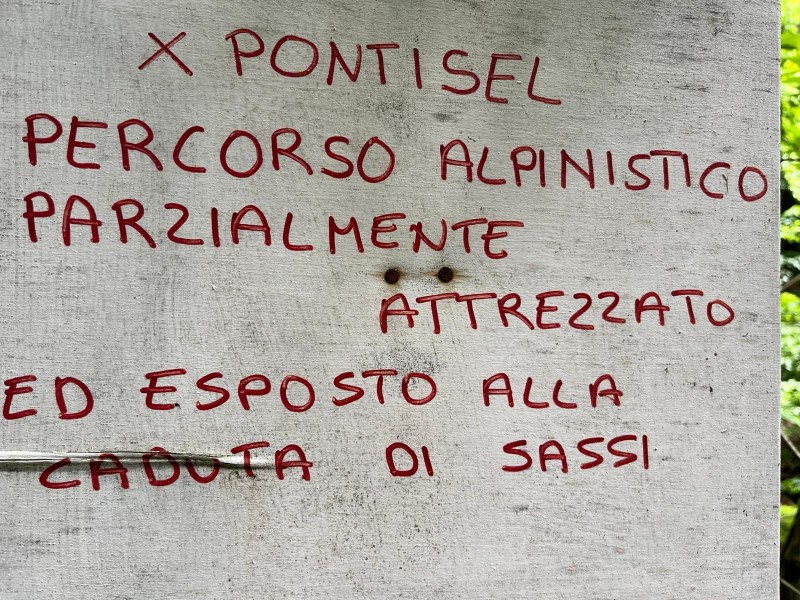 X PONTISEL
PERCORSO ALPINISTICO
PARZIALMENTE
ATTREZZATO
ED ESPOSTO ALLA
CADUTA DI SASSI